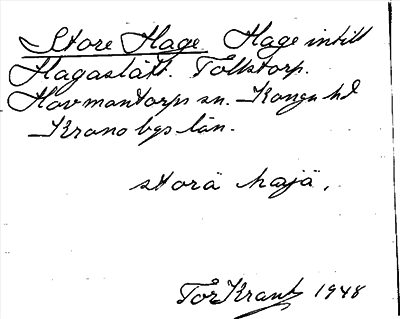 Store Hage. Hage intill
Hagaslätt. Tollstorp.
Hovmantorps sn. Konga hd
Kronobergs län.
storä hajä,
Tor Krantz 1948